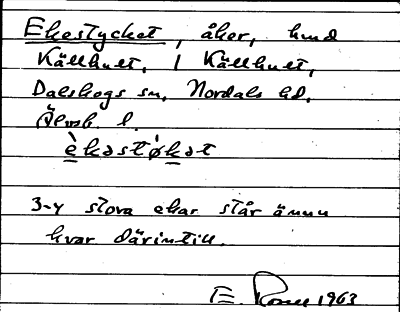 Ekestycket, åker, hmd
Källhult, 1 Källhult,
Dalskogs sn, Nordals hd,
Älvsb. l.
è̱kəstø̀ḵət
3-4 stora ekar står ännu
kvar därintill.
E. 1963